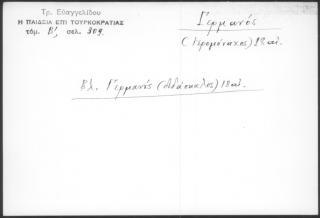 Τρ. Εὐαγγελίδου
Η ΠΑΙΔΕΙΑ ΕΠΙ ΤΟΥΡΚΟΚΡΑΤΙΑΣ
τόμ. Β', σελ. 309.
Γερμανός
(Ἱερομόναχος) 18 αἰ.
Βλ. Γερμανός (διδάσκαλος) 18 αἰ.